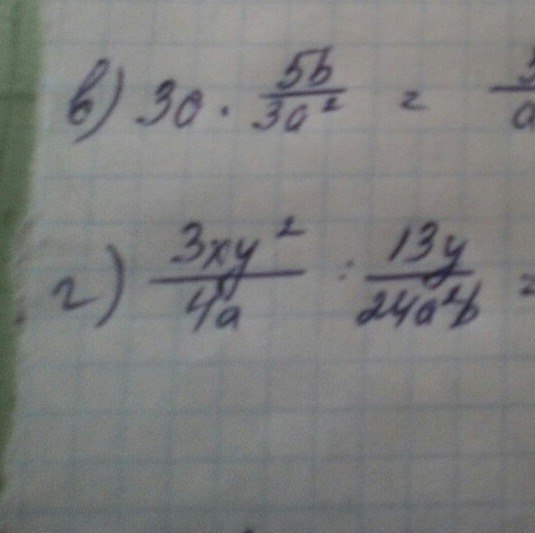 в) 3a · 5b/3a² =
г) 3xy²/4a : 13y/24a²b =